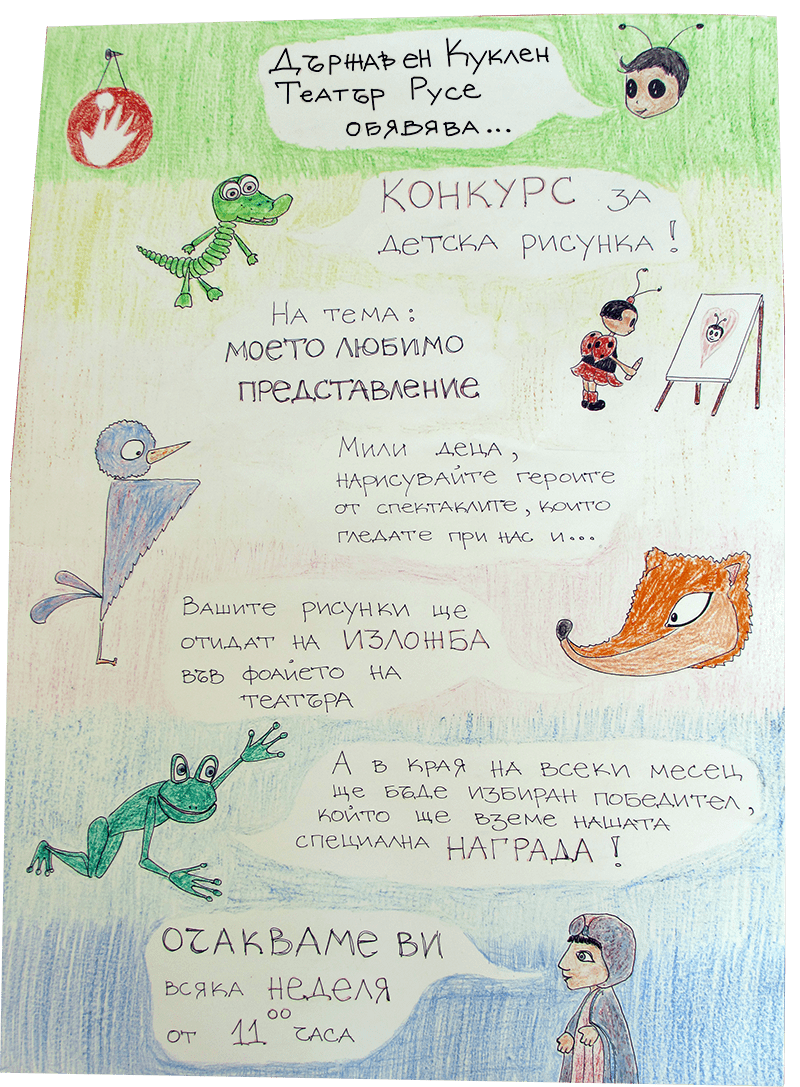 Държавен Куклен
Театър Русе
обявява...
КОНКУРС за
детска рисунка!
На тема:
моето любимо
представление
Мили деца,
нарисувайте героите
от спектаклите, които
гледате при нас и...
Вашите рисунки ще
отидат на ИЗЛОЖБА
във фоайето на
театъра
А в края на всеки месец
ще бъде избиран победител,
който ще вземе нашата
специална НАГРАДА!
Очакваме Ви
всяка неделя
от 11⁰⁰ часа